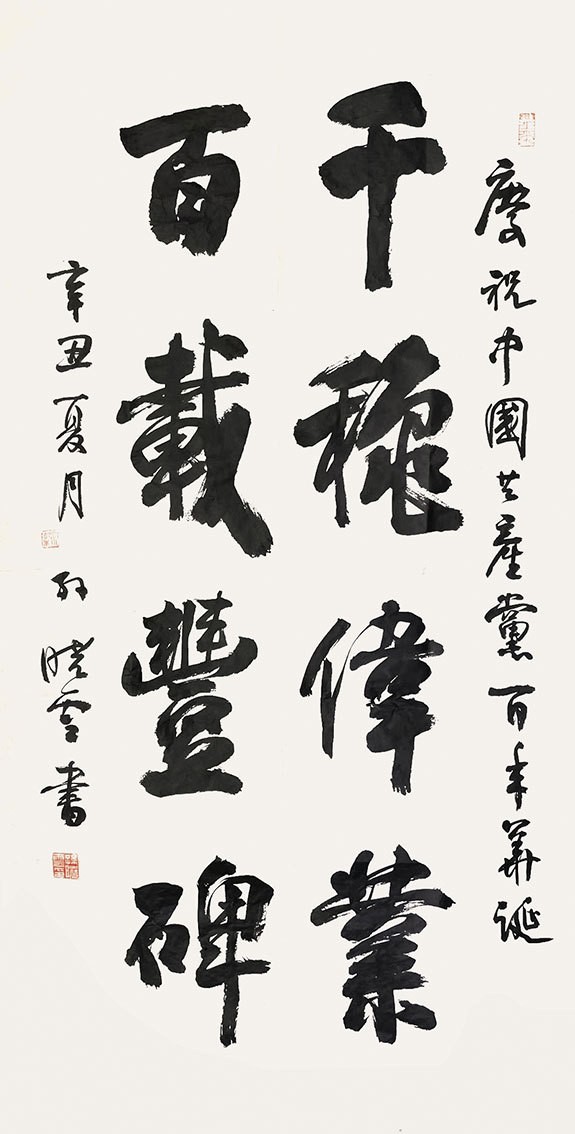 慶祝中國共產黨百年華誕
千穐偉業
百載豐碑
辛丑夏月 孫曉雲書